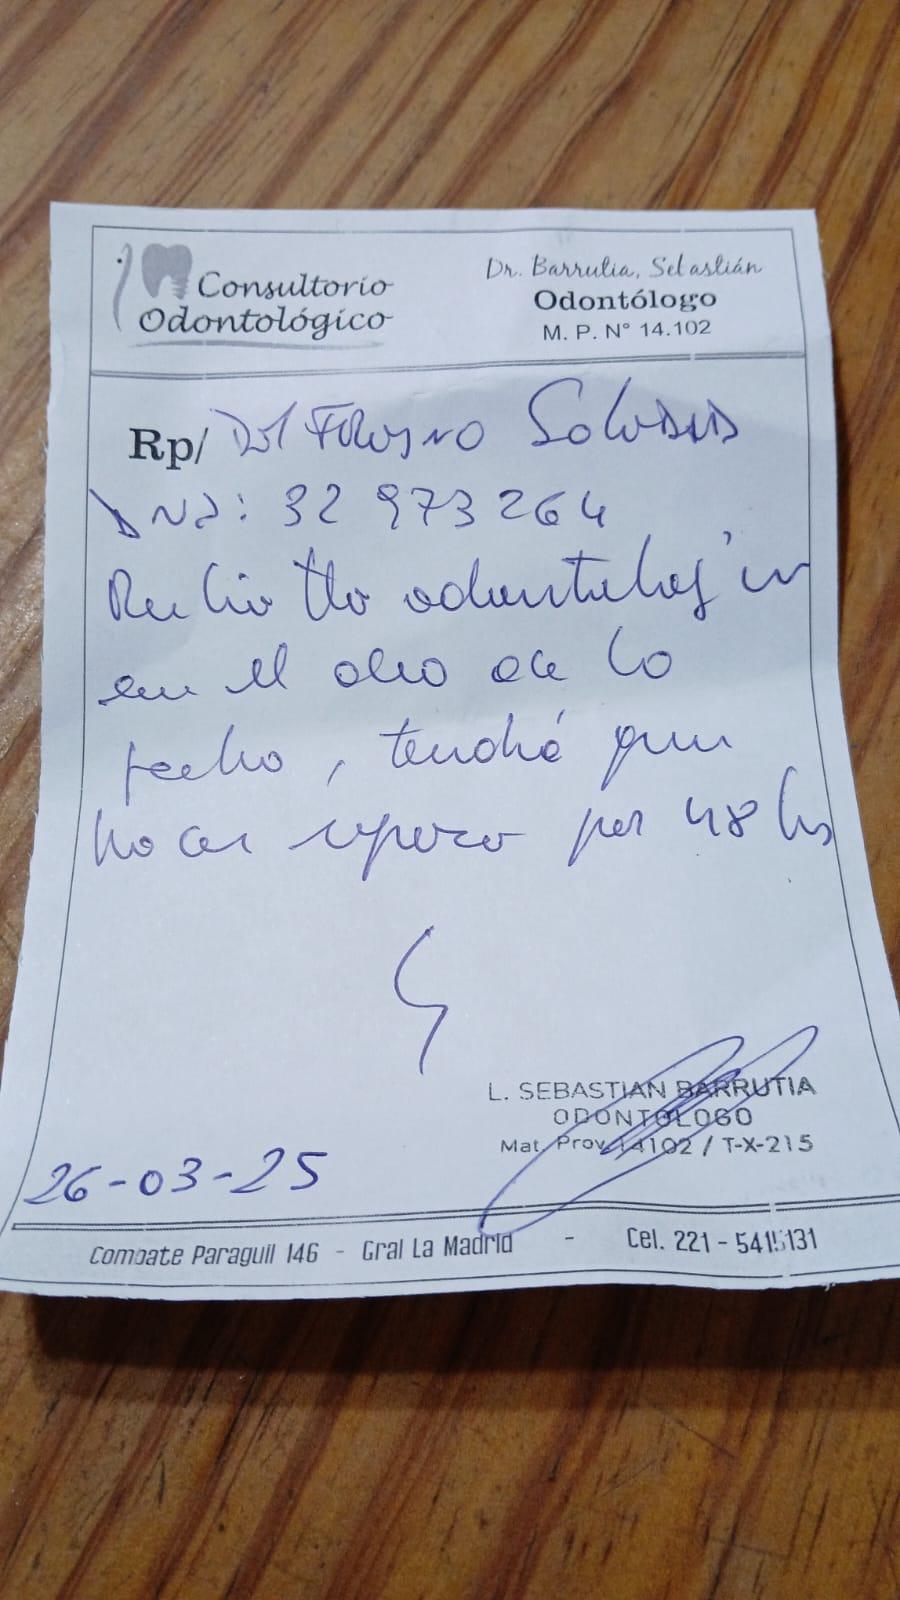 Consultorio
Odontológico
Dr. Barrutia, Sebastián
Odontólogo
M. P. N° 14.102
Rp/ Del Soledad
DNI: 32 973 264
Recibio tto odontologico
en el dia de la
fecha, tendrá que
hacer reposo por 48 hs
L. SEBASTIAN BARRUTIA
ODONTOLOGO
Mat. Prov. 14102 / T-X-215
26-03-25
Combate Paraguil 146 - Gral La Madrid - Cel. 221 - 5415131